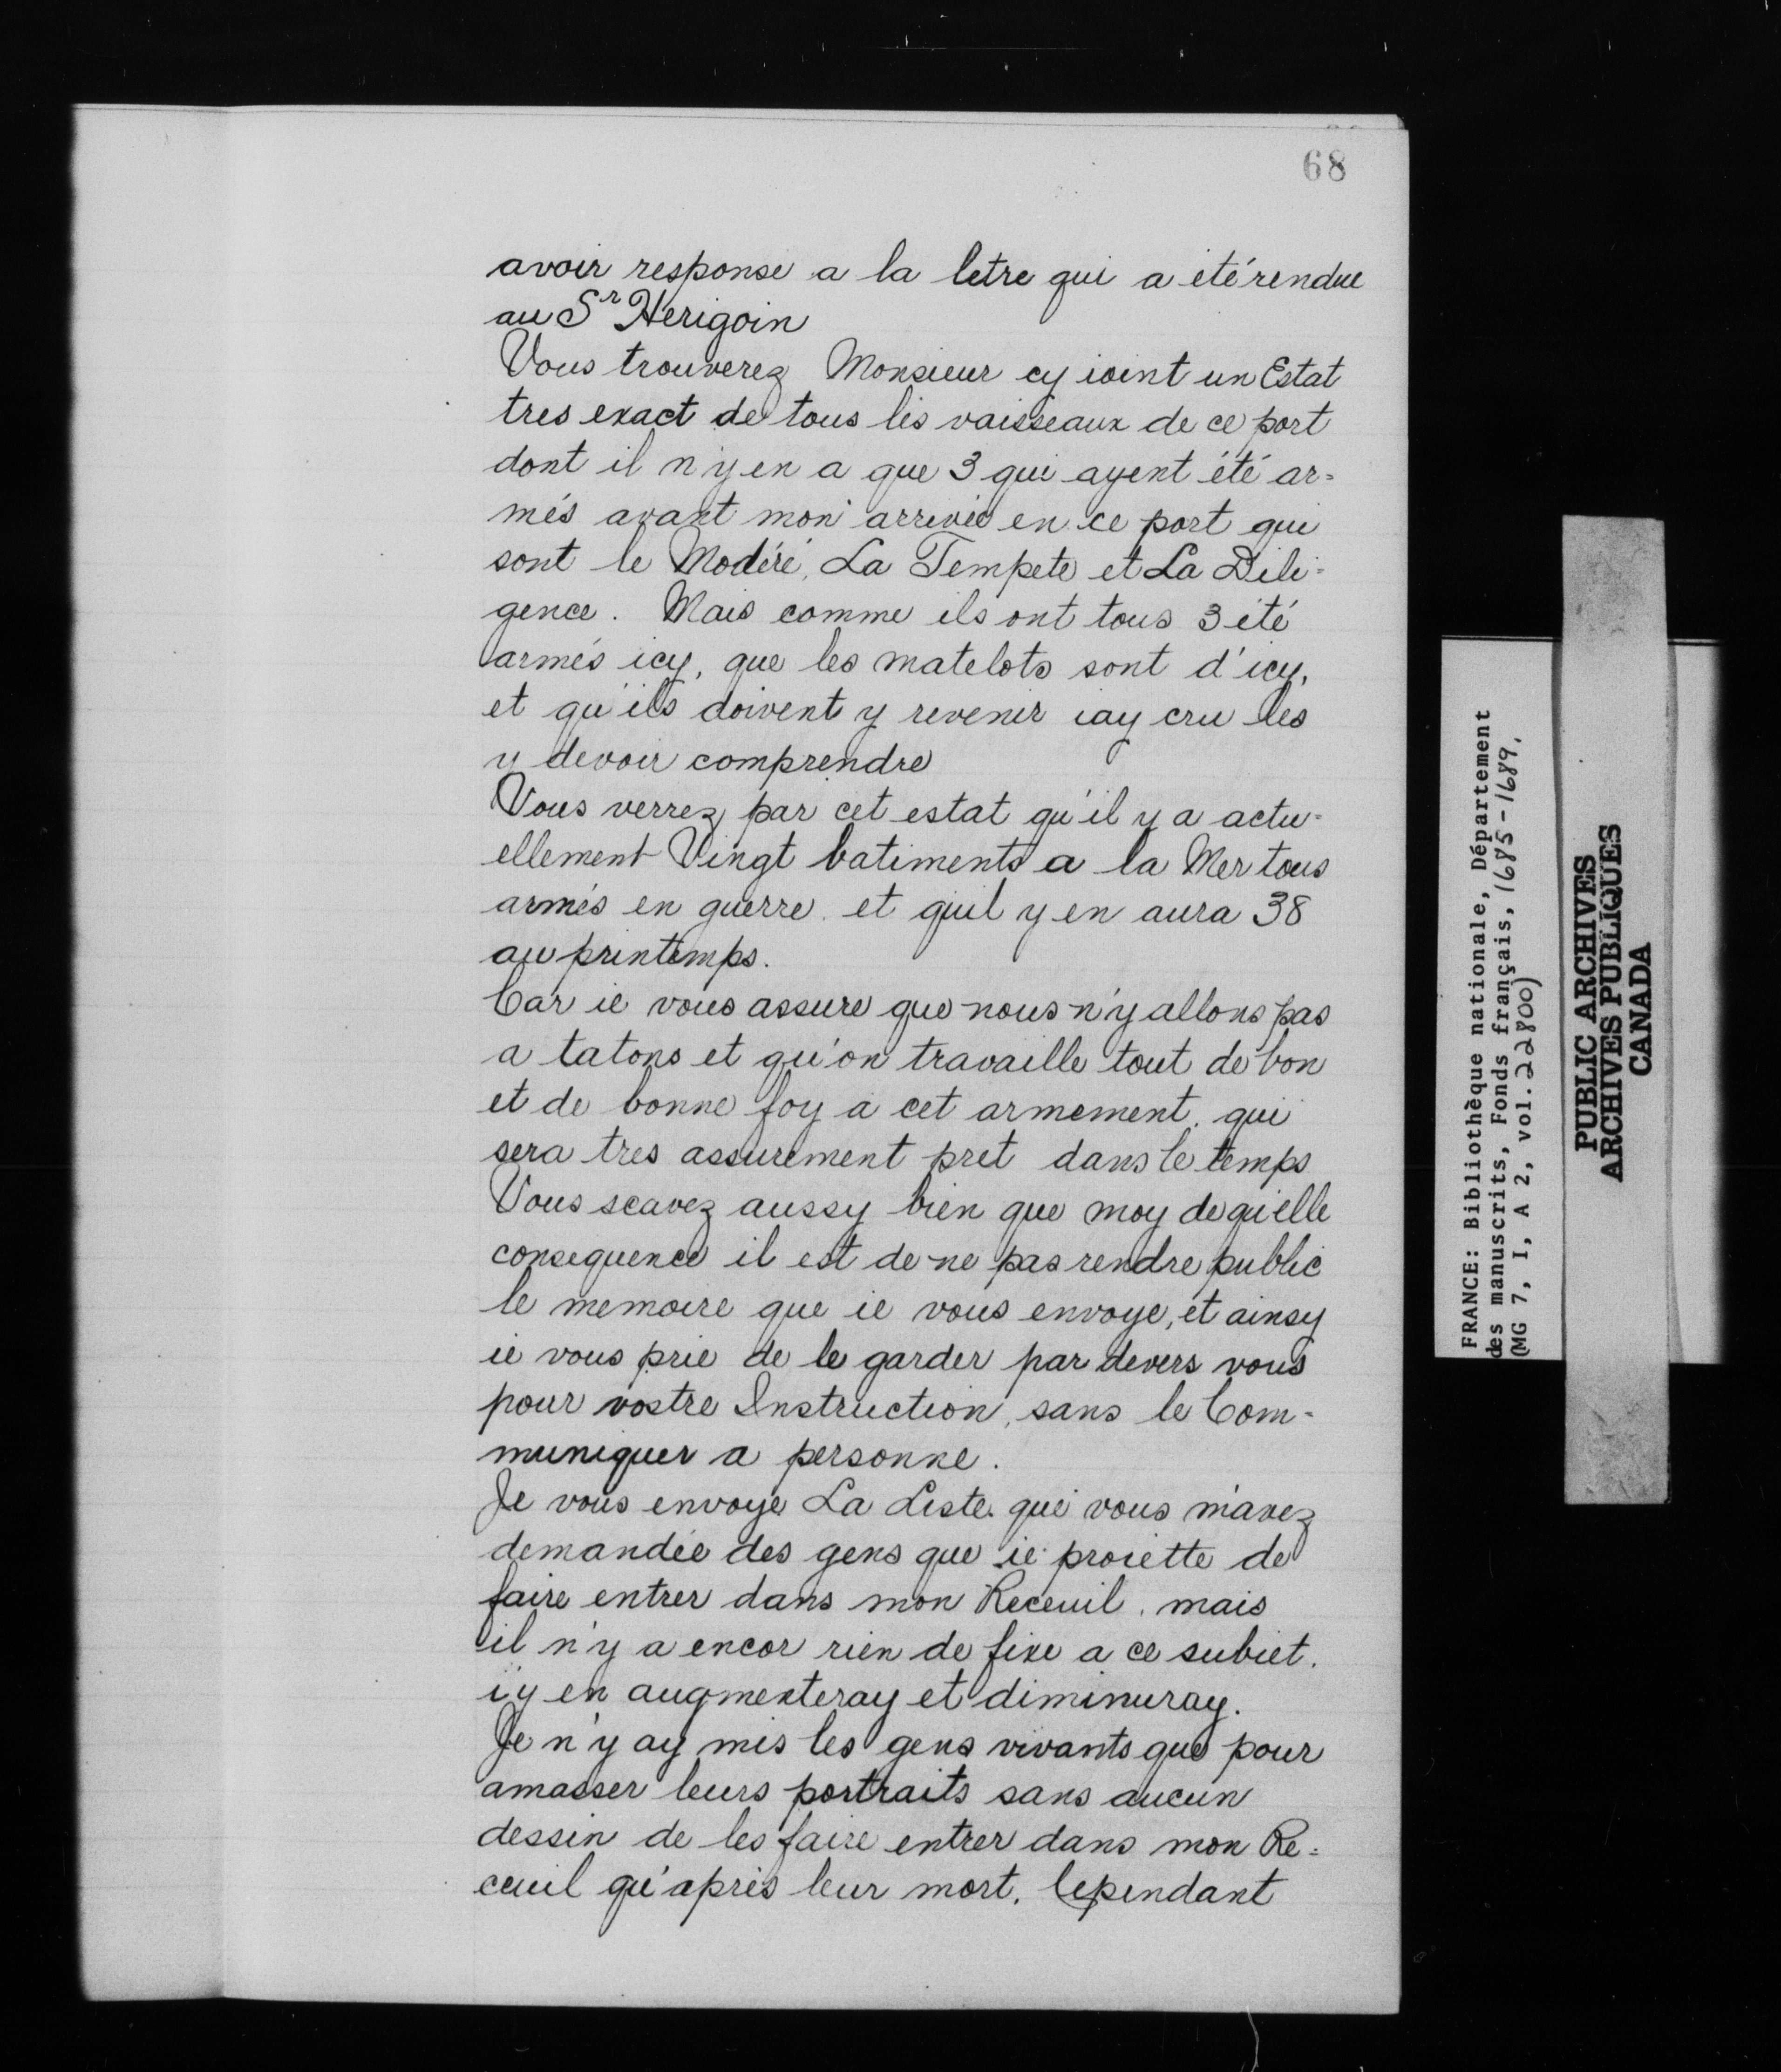 68
avoir response a la letre qui a eté rendue
au Sr Herigoin
Vous trouverez Monsieur cy ioint un Estat
tres exact de tous les vaisseaux de ce port
dont il n'y en a que 3 qui ayent été ar=
més avant mon arrivée en ce port qui
sont le Modéré, La Tempete et La Dili=
gence. Mais comme ils ont tous 3 été
armés icy, que les matelots sont d'icy,
et qu'ils doivent y revenir iay cru les
y devoir comprendre
Vous verrez par cet estat qu'il y a actu=
ellement Vingt batiments a la Mer tous
armés en guerre. et quil y en aura 38
au printemps.
Car ie vous assure que nous n'y allons pas
a tatons et qu'on travaille tout de bon
et de bonne foy a cet armement. qui
sera tres assurement pret dans le temps
Vous scavez aussy bien que moy de quelle
consequence il est de ne pas rendre public
le memoire que ie vous envoye, et ainsy
ie vous prie de le garder par devers vous
pour vostre Instruction, sans le Com-
muniquer a personne.
Je vous envoye La Liste que vous m'avez
demandée des gens que ie proiette de
faire entrer dans mon Receuil. mais
il n'y a encor rien de fixe a ce subiet.
i'y en augmenteray et diminuray.
Je n'y ay mis les gens vivants que pour
amasser leurs portraits sans aucun
dessin de les faire entrer dans mon Re=
ceuil qu'après leur mort. Cependant
FRANCE: Bibliothèque nationale, Département
des manuscrits, Fonds français, 1685-1689,
(MG 7, I, A 2, vol. 22800)
PUBLIC ARCHIVES
ARCHIVES PUBLIQUES
CANADA